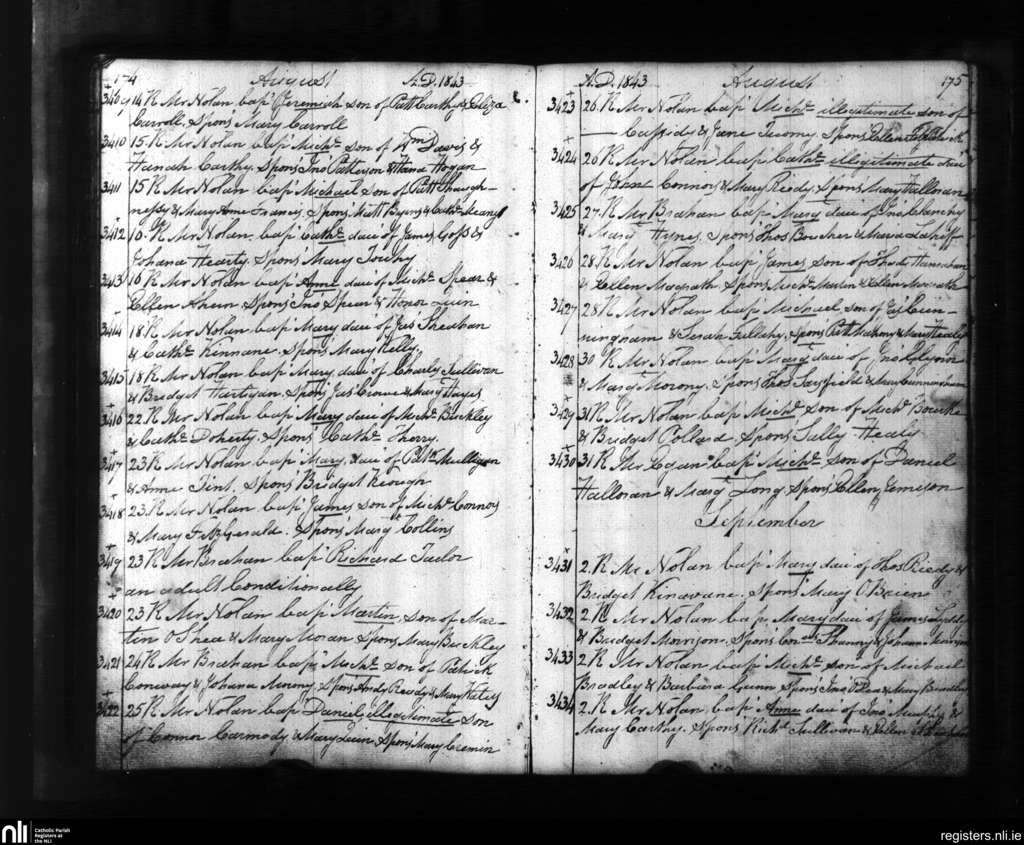 174 August A.D. 1843
3409 14 R Mr Nolan bap' Jeremiah son of Patt Carthy & Eliza
Carroll. Spons Mary Carroll
3410 15 R Mr Nolan bap' Michl son of Wm Davis &
Hanah Carthy. Spons Jno Patterson & Hana Hogan
3411 15 R Mr Nolan bap' Michael son of Patt Shaugh-
nessy & Mary Anne Francis. Spons Matt Byrns & Cath Meany
3412 16 R Mr Nolan bap' Cathe daur of James Goss &
Johana Hearty Spons Mary Touhy
3413 16 R Mr Nolan bap' Anne daur of Michl Spear &
Ellen Ahern Spons Jno Spear & Honor Quin
3414 18 R Mr Nolan bap' Mary daur of Jas Sheehan
& Cathe Kinnane. Spons Mary Kelly
3415 18 R Mr Nolan bap' Mary daur of Charly Sullivan
& Bridget Hartigan. Spons Jas Crowe & Mary Hayes
3416 22 R Mr Nolan bap' Mary daur of Michl Buckley
& Cathe Doherty. Spons Cathe Therry.
3417 23 R Mr Nolan bap' Mary daur of Patk Mulligan
& Anne Tint. Spons Bridget Keough
3418 23 R Mr Nolan bap' James son of Michl Connors
& Mary FitzGerald. Spons Mary Collins
3419 23 R Mr Brahan bap' Richard Tailor
an adult Conditionally
3420 23 R Mr Nolan bap' Martin son of Mar-
tin O'Shea & Mary Moran Spons Mary Buckley
3421 24 R Mr Brahan bap' Michl son of Patrick
Conway & Johana Morony. Spons Andy Reedy & Mary
3422 25 R Mr Nolan bap' Daniel illegitimate son
of Connor Carmody & Mary Quin Spons Mary Cremin
A.D. 1843 August 175
3423 26 R Mr Nolan bap' Michl illegitimate son of
—— Cassidy & Jane Twomy. Spons Ellen
3424 26 R Mr Nolan bap' Cathe illegitimate daur
of John Connors & Mary Riedy. Spons Mary Hallonan
3425 27 R Mr Brahan bap' Mary daur of Jno Clanchy
& Mary Hynes. Spons Thos Boucher & Maria
3426 28 R Mr Nolan bap' James son of Thady
& Ellen Magrath Spons Michl Martin & Ellen
3427 28 R Mr Nolan bap' Michael son of Cun-
ningham & Sarah Fallahy. Spons Patt & Mary Healy
3428 30 R Mr Nolan bap' Mary daur of Jno Glynn
& Mary Morony. Spons Thos Layfield & Cunningham
3429 31 R Mr Nolan bap' Michl son of Michl Bourke
& Bridget Pollard. Spons Sally Healy
3430 31 R Mr Logan bap' Michl son of Daniel
Hallonan & Mary Long Spons Ellen Jameson
September
3431 2 R Mr Nolan bap' Mary daur of Thos Riedy &
Bridget Kinavane. Spons Mary O'Brien
3432 2 R Mr Nolan bap' Mary daur of James
& Bridget Morrison. Spons & Johana
3433 2 R Mr Nolan bap' Michl son of Michael
Bradley & Barbara Gunn Spons Jno & Mary Bradley
3434 2 R Mr Nolan bap' Anne daur of Jno Murphy &
Mary Carthy. Spons Richd Sullivan & Ellen
nli
Catholic Parish
Registers at
the NLI
registers.nli.ie